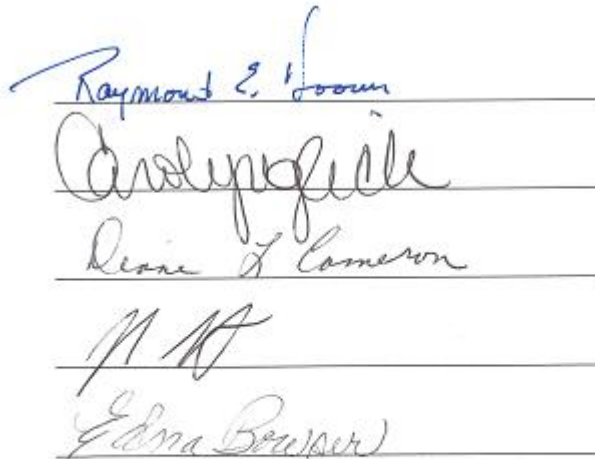 Raymond E.
Carolyn Glick
Diane L Cameron
Edna Bowser